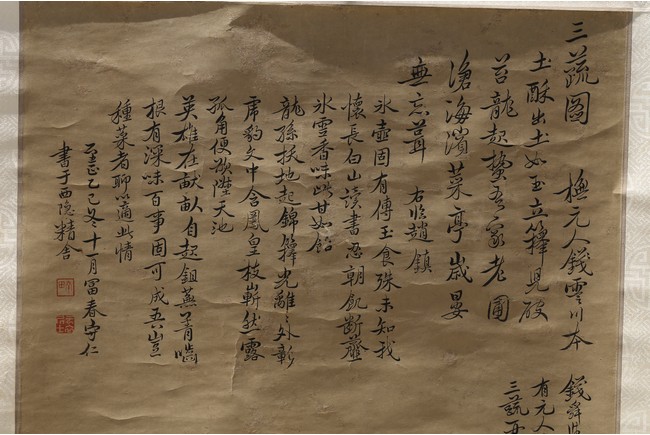 三蔬圖 撫元人錢雲川本
土酥出土如玉立籜兒破
苔龍起蟄吾家老圃
滄海濱菜亭歲晏
無忘葺 右臨趙鎮
冰壺固有傳玉食殊未知我
懷長白山讀書忍朝飢斷虀
冰雪香味此甘如飴
龍孫扶地起錦籜光離離外彰
虎豹文中含鳳皇枝嶄然露
孤角便欲墮天池
英雄在畎畝自起鉏蕪菁嚙
根有深味百事固可成吾豈
種菜者聊以蕭此情
至正乙巳冬十一月富春守仁
書于西隱精舍
錢舜
有元人
三蔬